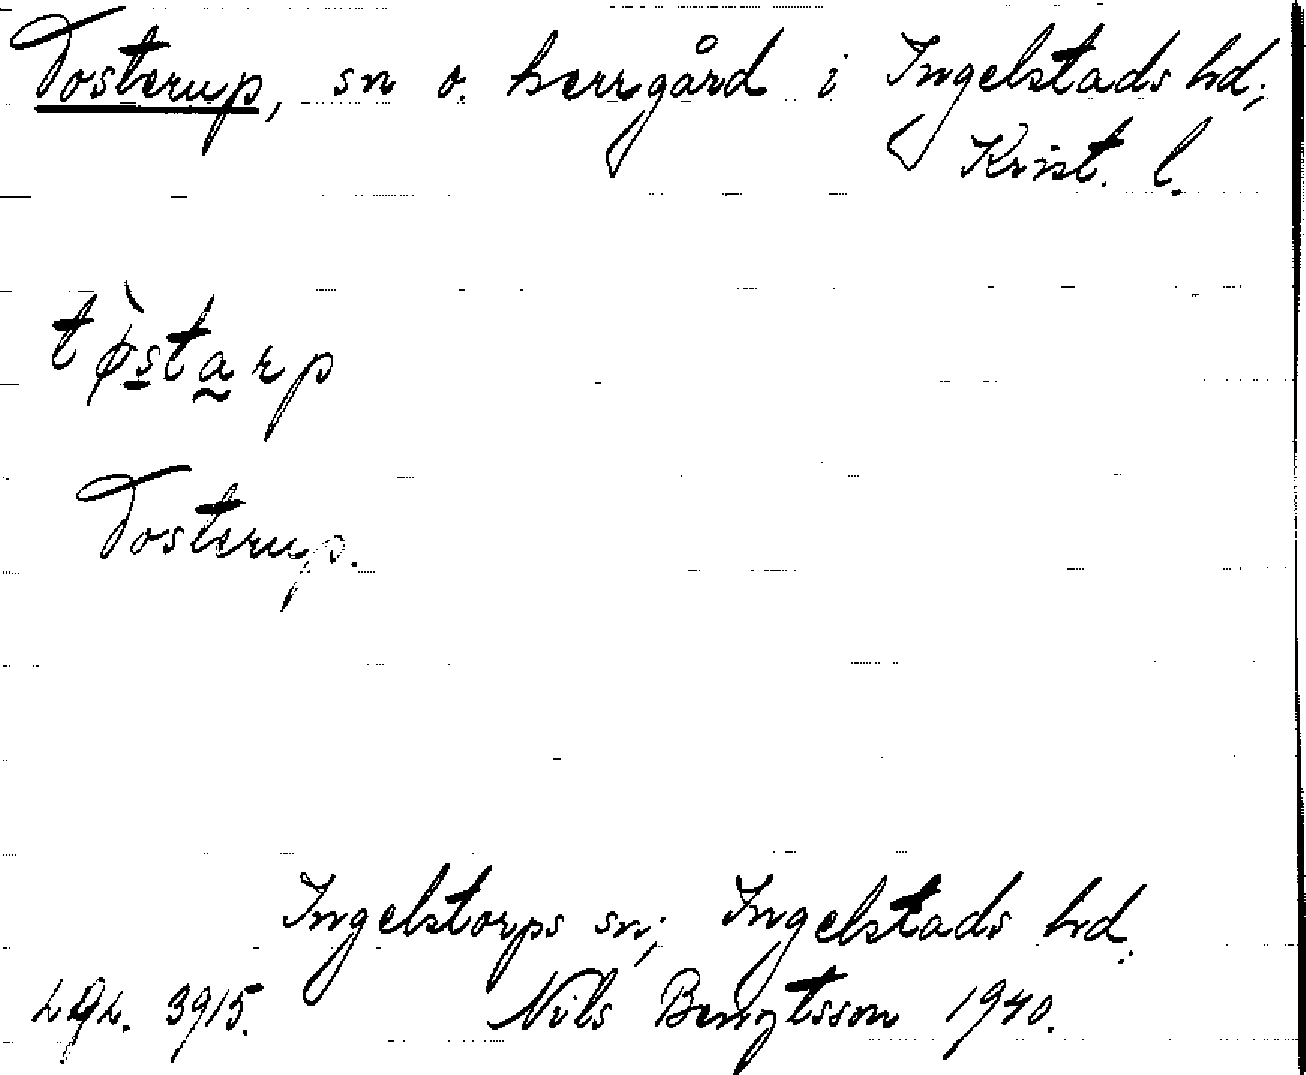 Tosterup, sn o. herrgård i Ingelstads hd;
Krist. l.
tø̀starp
Tosterup.
Ingelstorps sn; Ingelstads hd.
3915. Nils Bengtsson 1940.